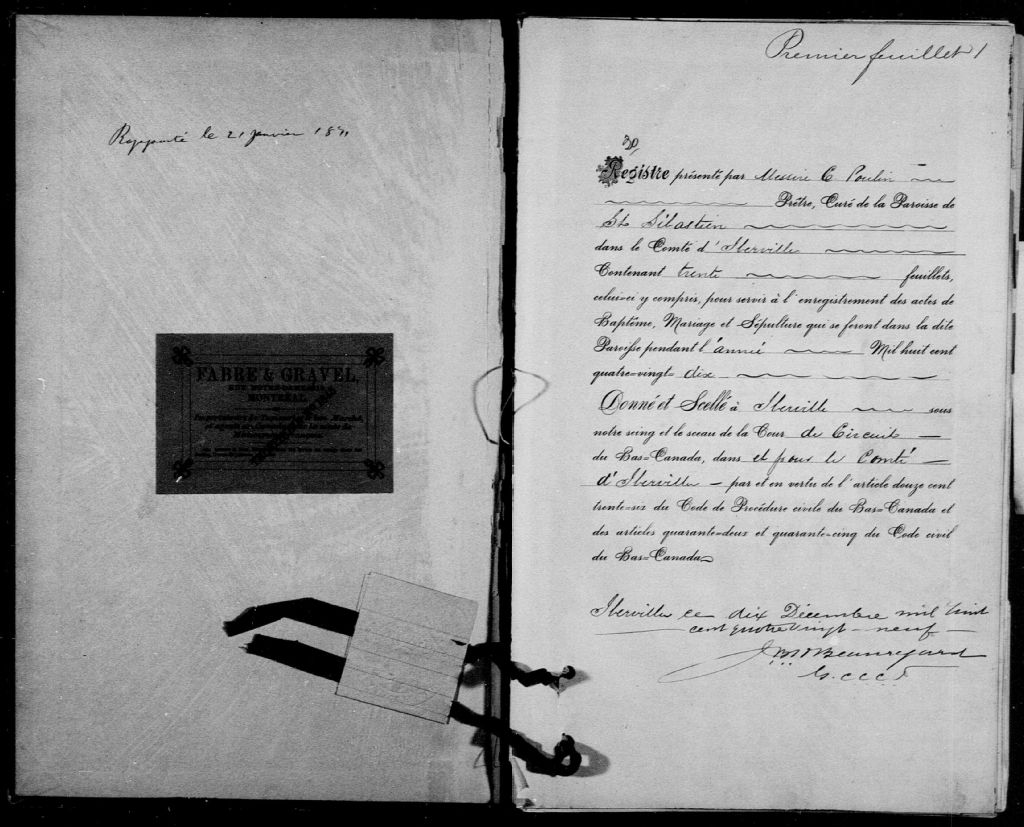 Rapporté le 21 janvier 1891
FABRE & GRAVEL,
MONTREAL
Premier feuillet 1
Registre présenté par Messire C. Poulin
Prêtre, Curé de la Paroisse de
St Sébastien
dans le Comté d'Iberville
Contenant trente feuillets,
celui=ci y compris, pour servir à l'enregistrement des actes de
Baptême, Mariage et Sépulture qui se feront dans la dite
Paroisse pendant l'année Mil huit cent
quatre=vingt= dix
Donné et Scellé à Iberville sous
notre seing et le sceau de la Cour de Circuit
du Bas=Canada, dans et pour le Comté
d'Iberville par et en vertu de l'article douze cent
trente=six du Code de Procédure civile du Bas=Canada et
des articles quarante=deux et quarante=cinq du Code civil
du Bas=Canada
Iberville ce dix Décembre mil huit
cent quatre vingt-neuf
Beauregard